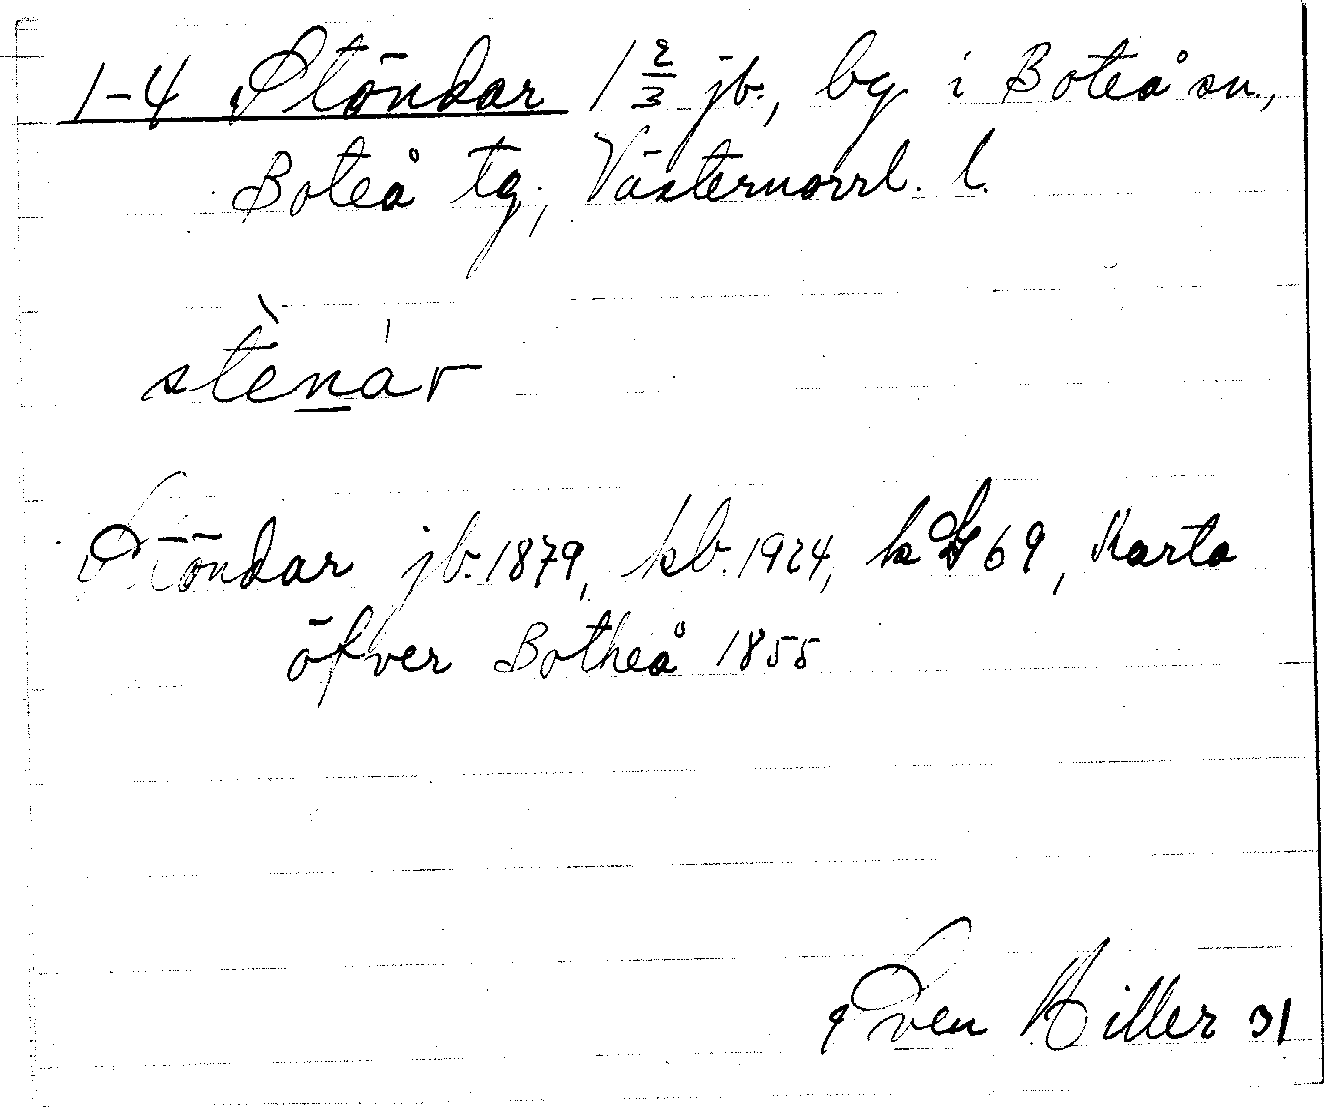 1-4 Stöndar 1 2/3 jb., by i Boteå sn.,
Boteå tg., Västernorrl. l.
stènár
Stöndar jb. 1879, kb. 1924, k 69, Karta
öfver Botheå 1855
Sven Hiller 31